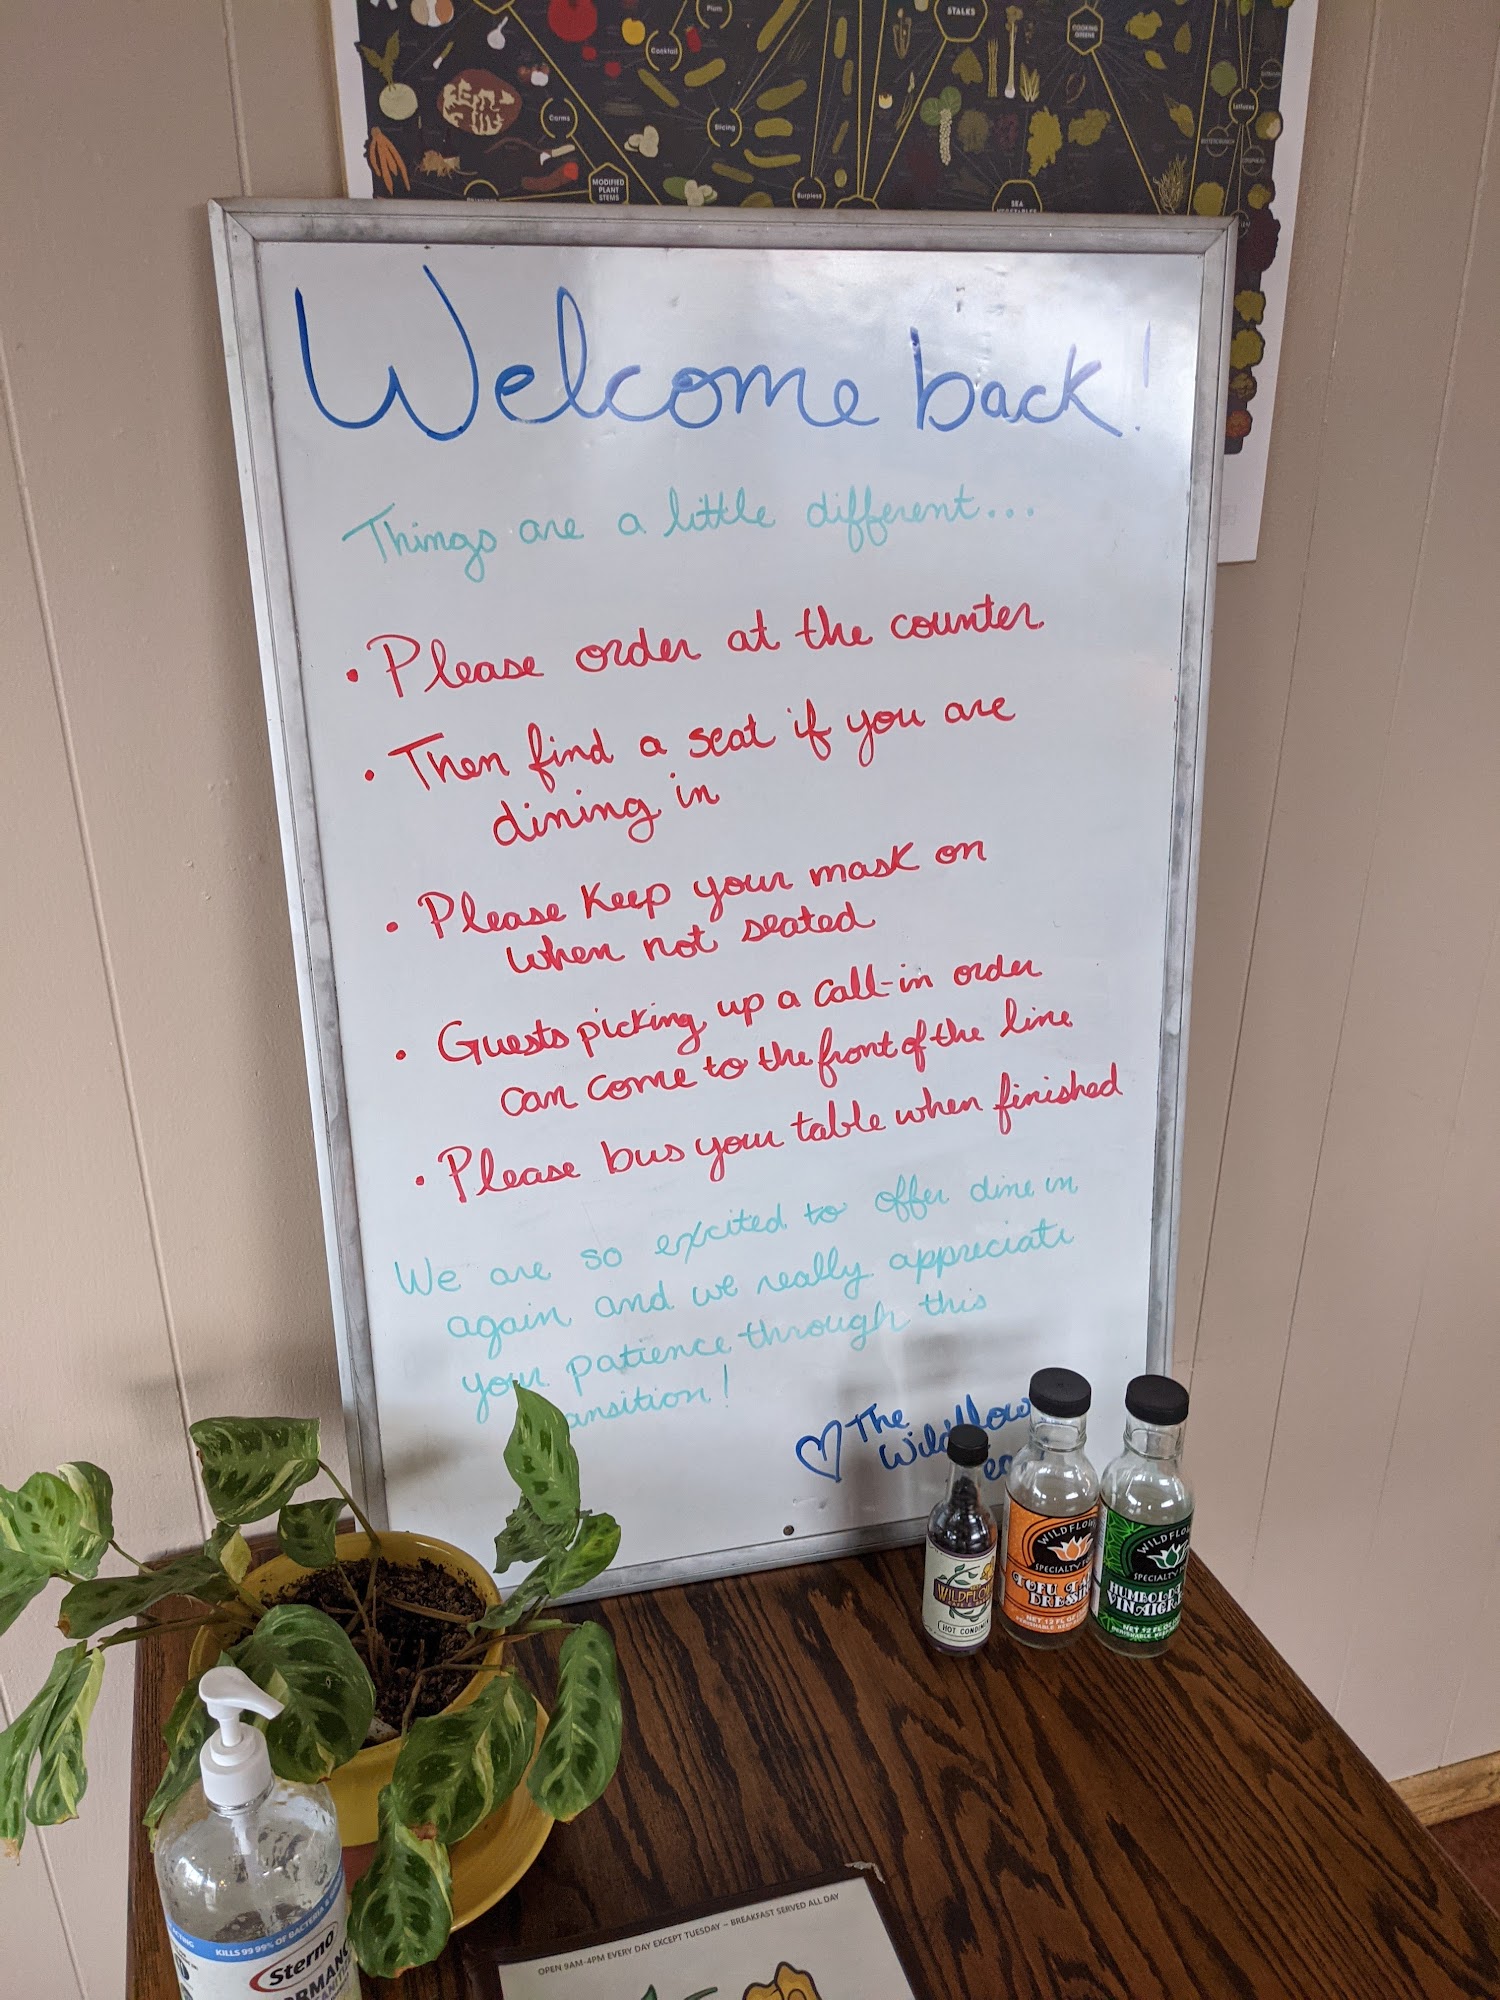 Plum
Cocktail
Corms
Slicing
Burpless
STALKS
COOKING
GREENS
MODIFIED
PLANT
STEMS
SEA
Welcome back!
Things are a little different...
• Please order at the counter
• Then find a seat if you are
dining in
• Please keep your mask on
when not seated
• Guests picking up a call-in order
can come to the front of the line
• Please bus your table when finished
We are so excited to offer dine in
again and we really appreciate
your patience through this
ansition!
♡ The
WILDFLOW
HOT CONDIM
WILDFLOW
SPECIALTY FO
TOFU
DRESSIN
NET 12 FL OZ
WILDFLOW
SPECIALTY
HUMBOLD
VINAIGRE
NET 12 FL OZ
KILLS 99.99% OF BACTERIA &
Sterno
OPEN 9AM-4PM EVERY DAY EXCEPT TUESDAY ~ BREAKFAST SERVED ALL DAY